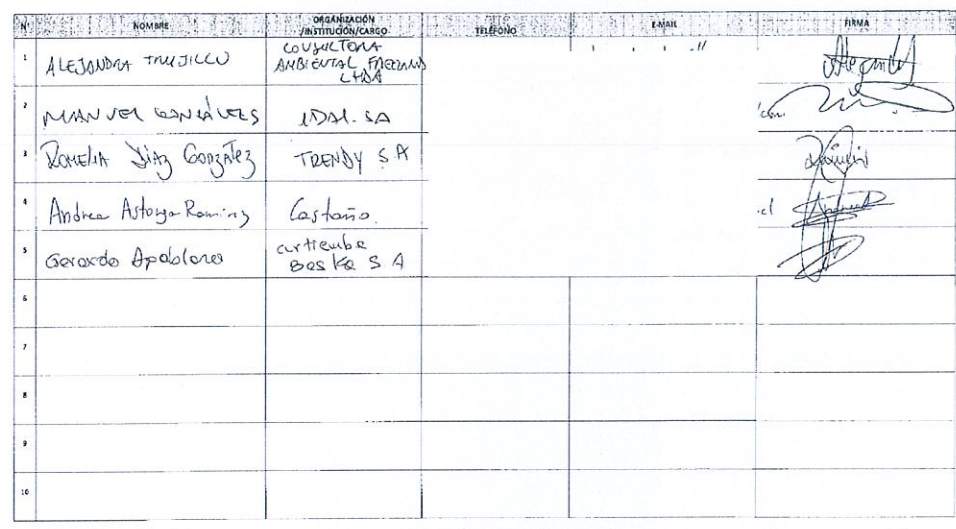 N° NOMBRE ORGANIZACIÓN /INSTITUCIÓN/CARGO TELEFONO E-MAIL FIRMA
1 ALEJANDRA TRUJILLO CONSULTORA AMBIENTAL LTDA
2 MANUEL IDAL. SA
3 ROMELIA DÍAZ GONZÁLEZ TRENDY S.A
4 Andrea Astorga Ramírez Castaño.
5 Gerardo Apablaza curtiembre Bas Ka S.A
6
7
8
9
10